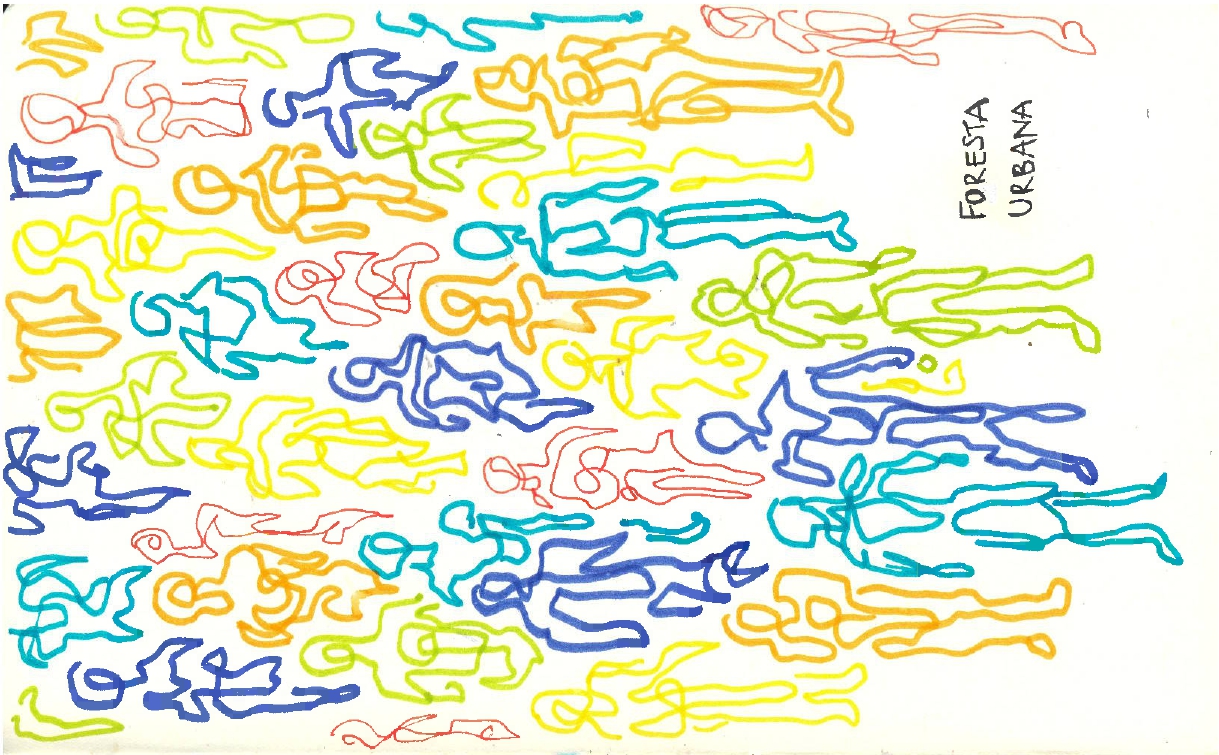 FORESTA
URBANA